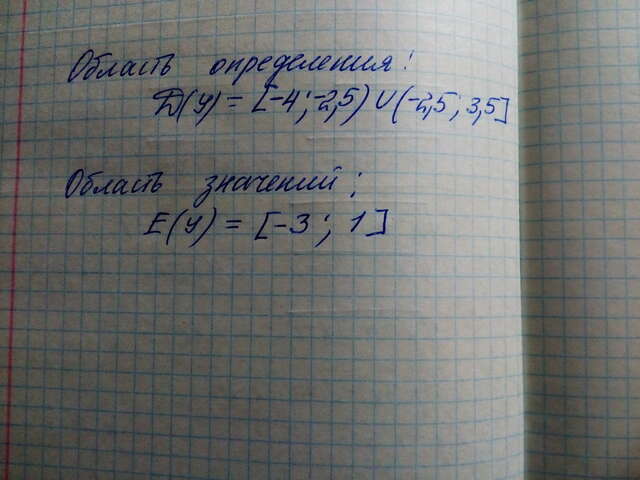 Область определения:
D(y) = [-4; -2,5) ∪ (-2,5; 3,5]
Область значений:
E(y) = [-3; 1]